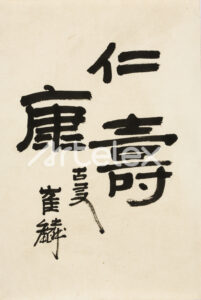 仁壽
康
古邑
崔鱗
Artelex